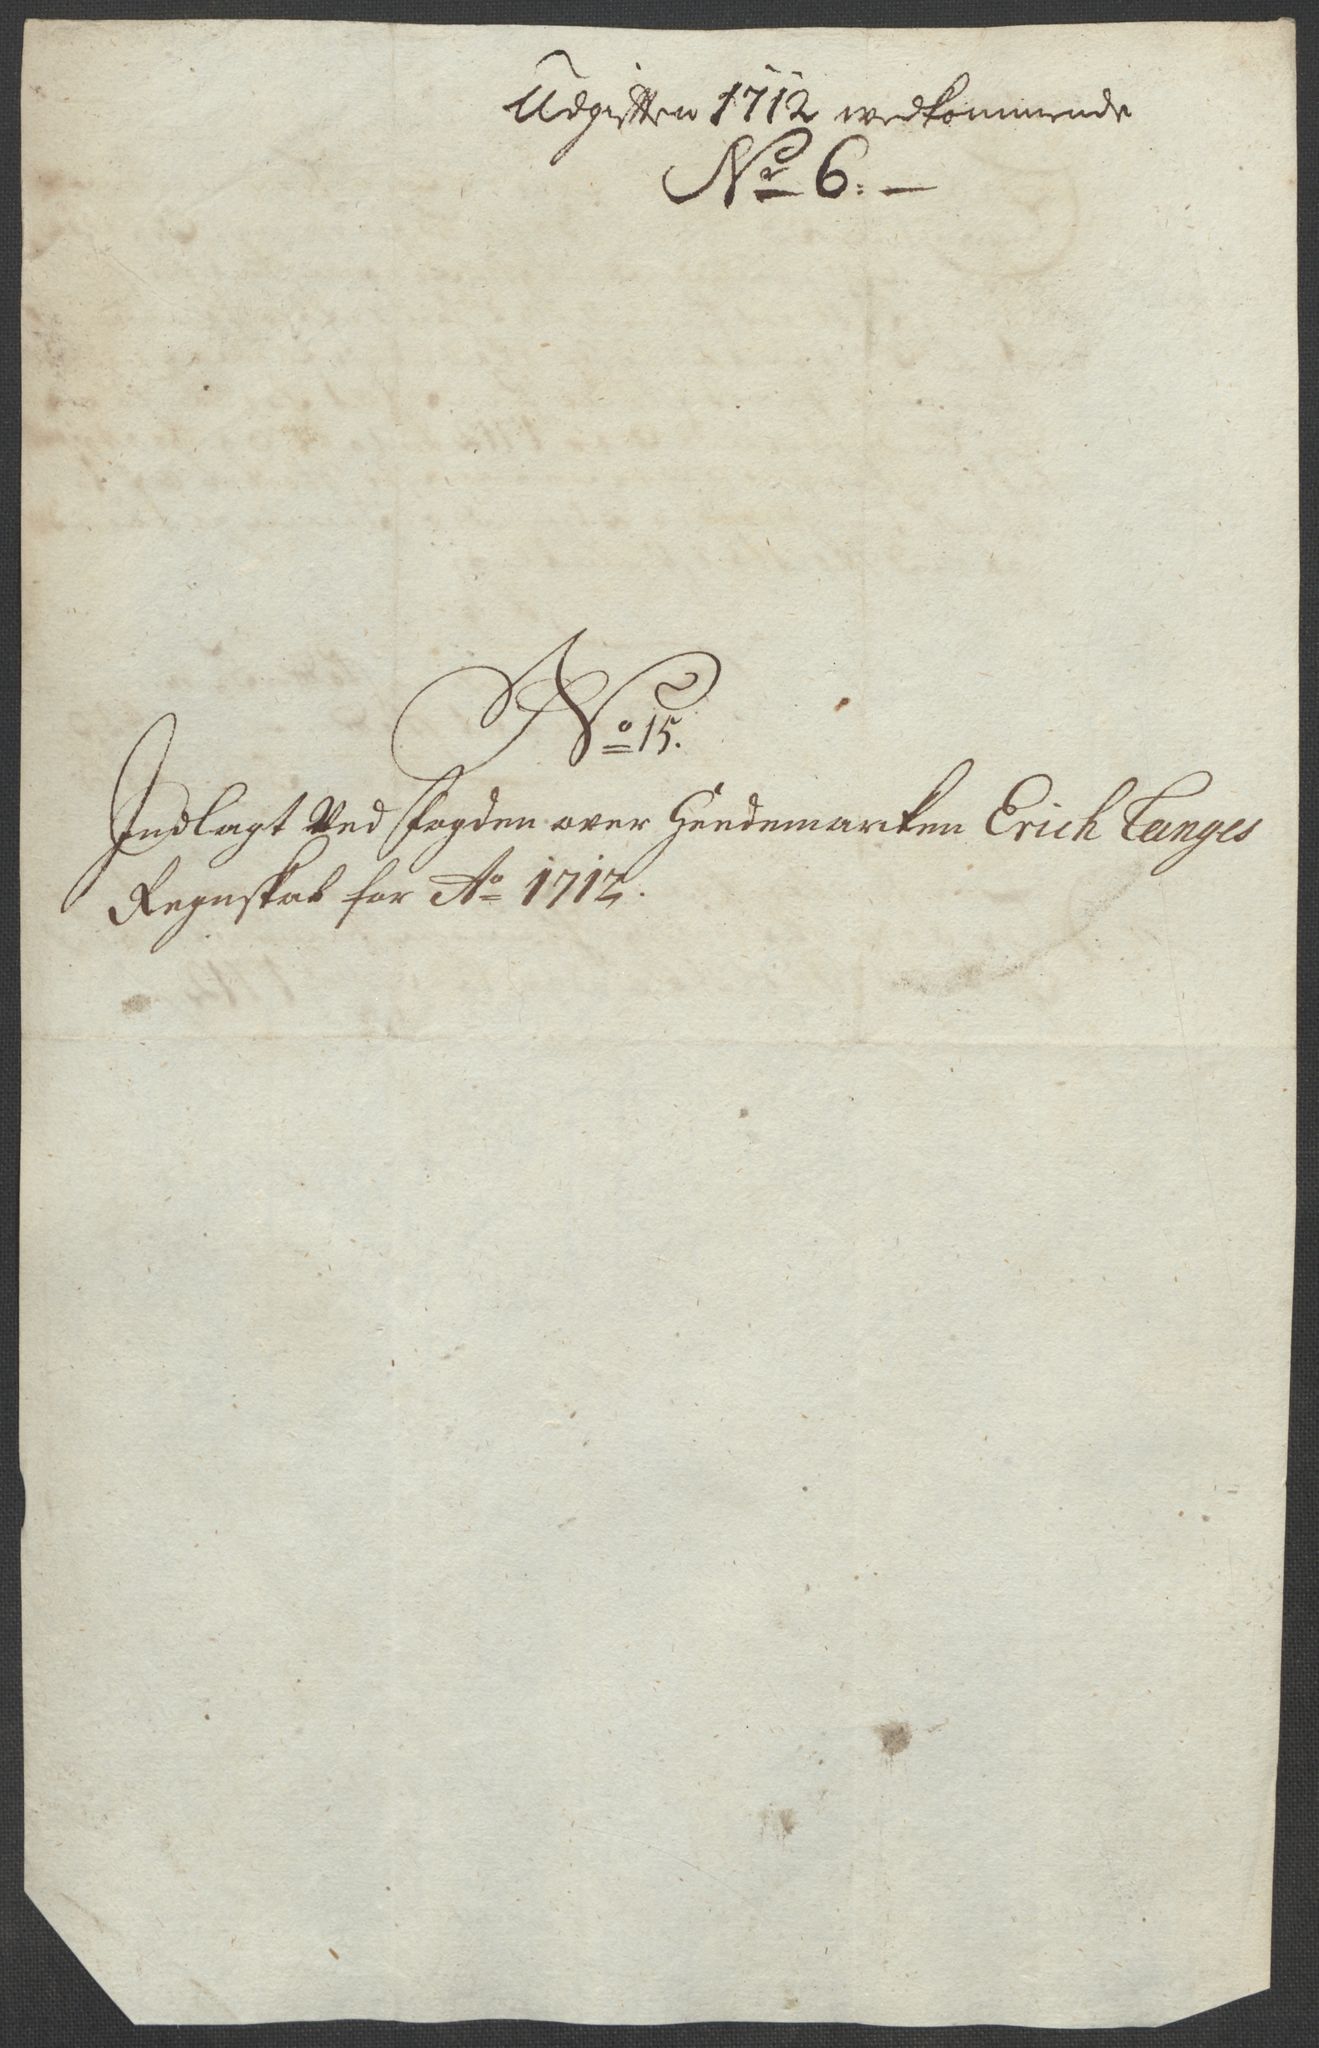 Udgiften 1712 vedkommende
No 6. —
No 15.
Indlagt Ved Fogden over Heedemarken Erich Tanges
Regnskab for Ao 1712.